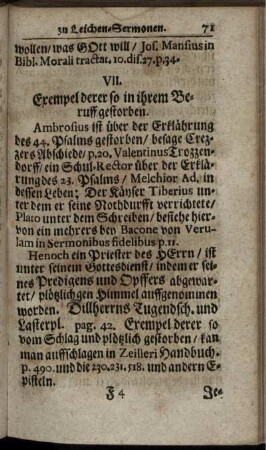 zu Leichen-Sermonen. 71
wollen/ was GOtt will / Jos. Mansius in
Bibl. Morali tractat. 10. dis. 27. p. 34.
VII.
Exempel derer so in ihrem Be-
ruff gestorben.
Ambrosius ist über der Erklährung
des 44. Psalms gestorben / besage Crez-
zers Abschiede/ p. 20. Valentinus Trozzen-
dorff/ ein Schul-Rector über der Erklä-
rung des 23. Psalms / Melchior Ad. in
dessen Leben; Der Käyser Tiberius un-
ter dem er seine Nothdurfft verrichtete/
Plato unter dem Schreiben / besiehe hier-
von ein mehrers bey Bacone von Veru-
lam in Sermonibus fidelibus p. 11.
Henoch ein Priester des HErrn / ist
unter seinem Gottesdienst/ indem er sei-
nes Predigens und Opffers abgewar-
tet/ plötzlich gen Himmel auffgenommen
worden. Dillherrns Tugendsch. und
Lasterpl. pag. 42. Exempel derer so
vom Schlag und plötzlich gestorben / kan
man auffschlagen in Zeilleri Handbuch.
p. 490. und die 230. 231. 518. und andern E-
pisteln.
F 4 Je-